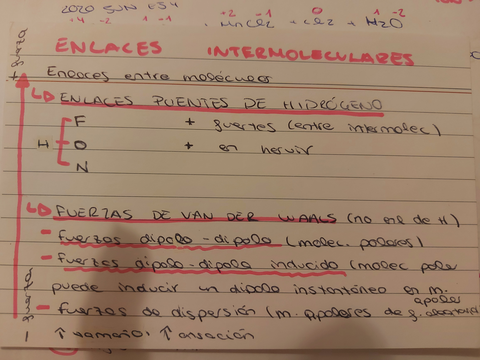 2020 JUN
+4 -2 1 -1 +2 -1 0 1 -2
MnCl2 + Cl2 + H2O
ENLACES INTERMOLECULARES
Enlaces entre moléculas
ENLACES PUENTES DE HIDRÓGENO
F + fuertes (entre intermolec)
H O + en hervir
N
+ fuerza
FUERZAS DE VAN DER WAALS (no enl de H)
- fuerzas dipolo-dipolo (molec. polares)
- fuerzas dipolo-dipolo inducido (molec polar
puede inducir un dipolo instantáneo en m.
apolar
- fuerzas de dispersión (m. apolares de g.
↑ tamaño, ↑ atracción